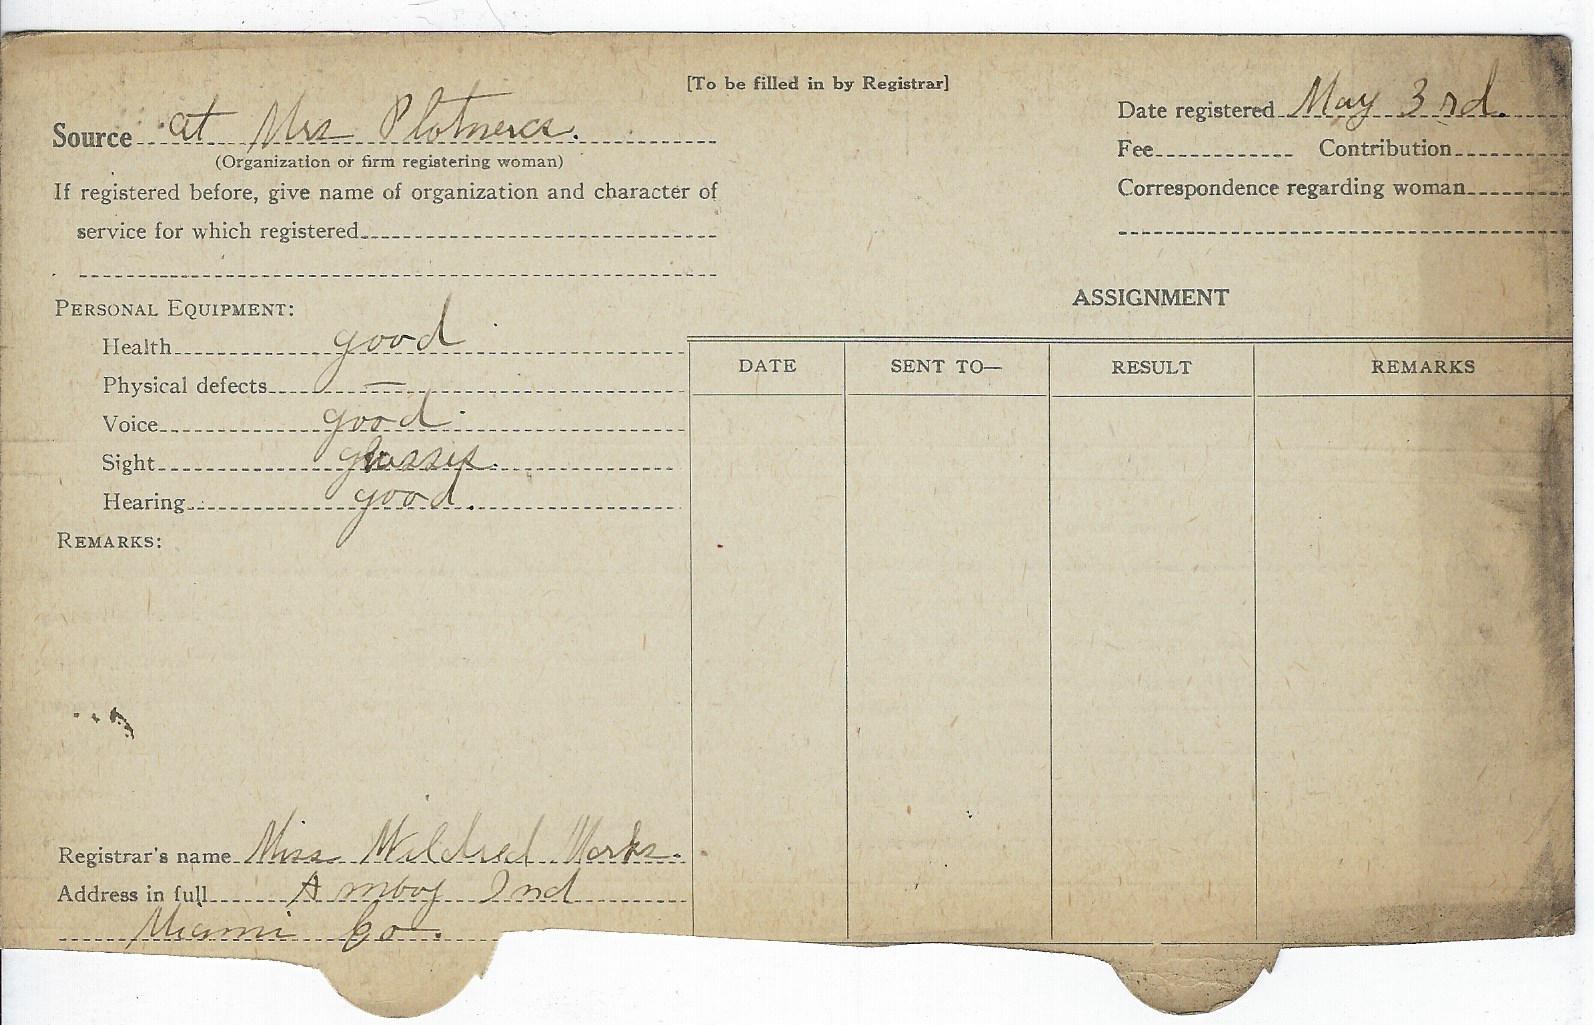 [To be filled in by Registrar]
Source at Mrs
(Organization or firm registering woman)
If registered before, give name of organization and character of
service for which registered
Date registered May 3rd.
Fee Contribution
Correspondence regarding woman
PERSONAL EQUIPMENT:
Health good
Physical defects —
Voice good
Sight glasses.
Hearing good.
REMARKS:
ASSIGNMENT
DATE SENT TO— RESULT REMARKS
Registrar's name Miss Mildred Works.
Address in full Amboy Ind
Miami Co.